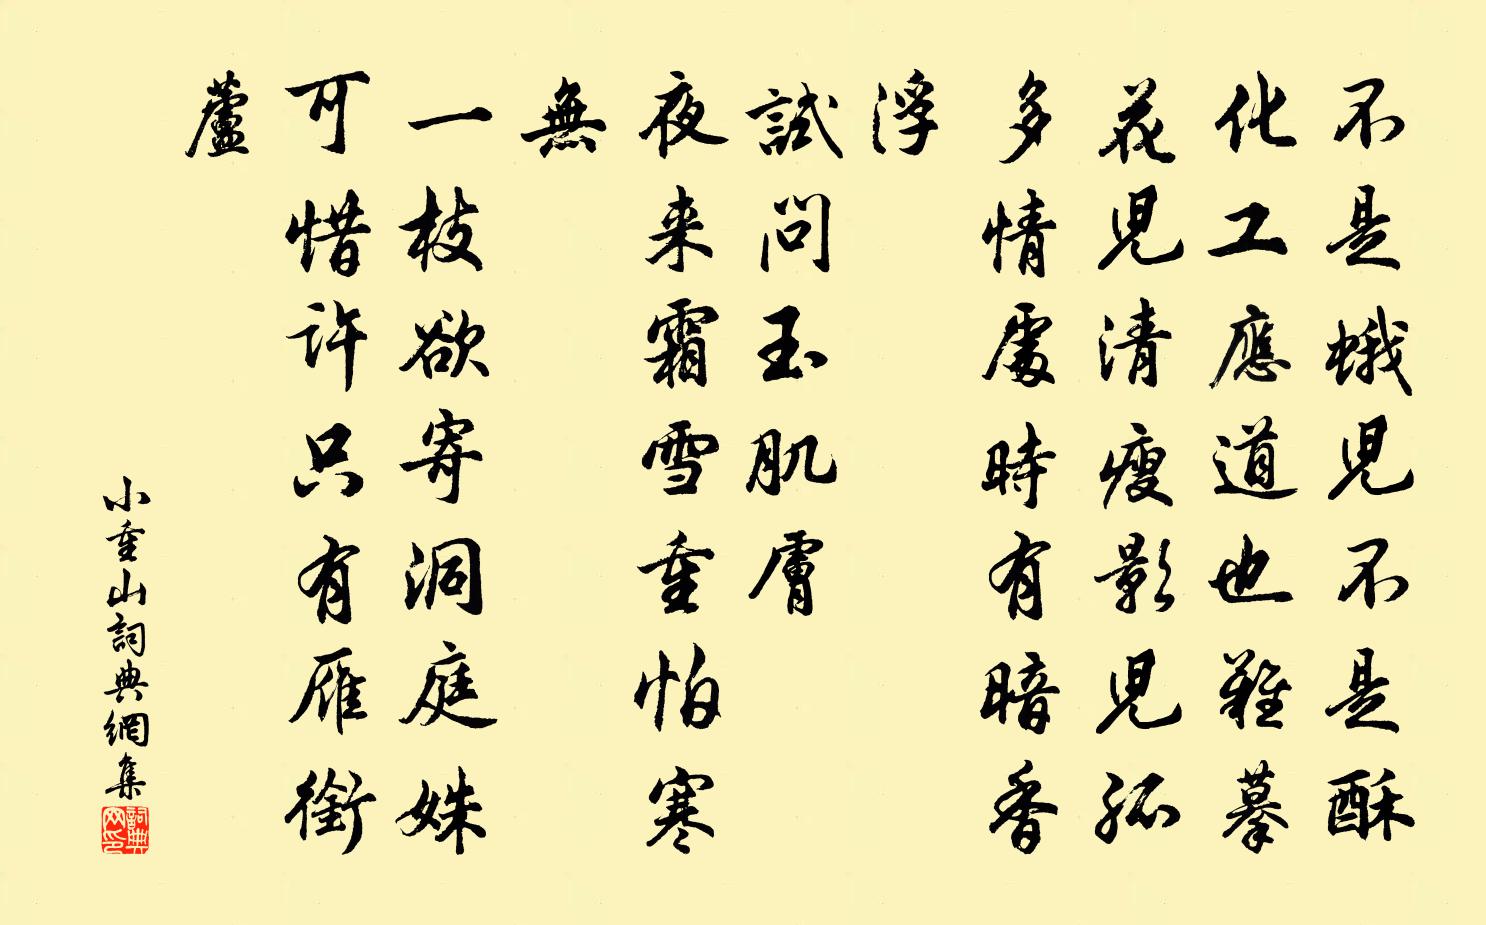 不是蛾児不是酥
化工應道也難摹
花児清瘦影児孤
多情處時有暗香
浮
試問玉肌膚
夜来霜雪重怕寒
無
一枝欲寄洞庭姝
可惜許只有雁銜
蘆
小重山詞典網集
詞典網印